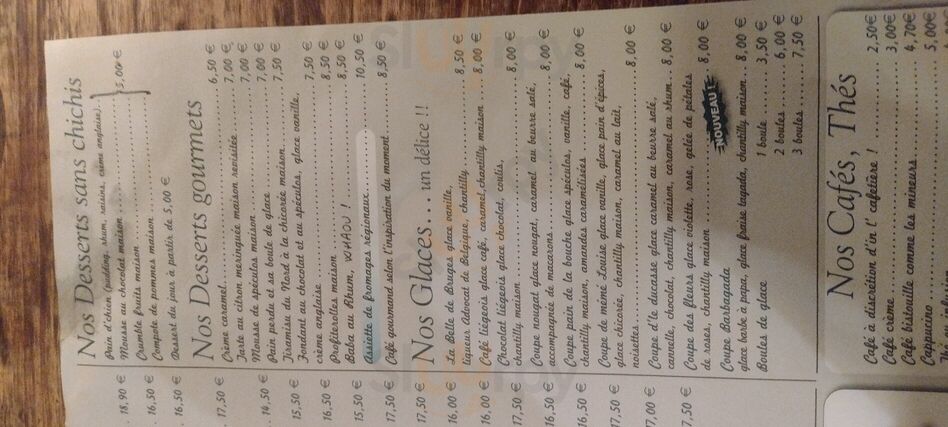 Nos Desserts sans chichis
Pain d'chien (pudding, rhum, raisins, crème anglaise)
Mousse au chocolat maison
Crumble fruits maison
Compote de pommes maison
5,00 €
Dessert du jour à partir de 5,00 €
Nos Desserts gourmets
Crème caramel 6,50 €
Tarte au citron meringuée maison revisitée 7,00 €
Mousse de spéculos maison 7,00 €
Pain perdu et sa boule de glace 7,00 €
Tiramisu du Nord à la chicorée maison 7,50 €
Fondant au chocolat et au spéculos, glace vanille,
crème anglaise 7,50 €
Profiteroles maison 8,50 €
Baba au Rhum, WHAOU ! 8,50 €
Assiette de fromages régionaux 10,50 €
Café gourmand selon l'inspiration du moment 8,50 €
Nos Glaces... un délice !!
La Belle de Bruges glace vanille,
liqueur Advocat de Belgique, chantilly 8,50 €
Café liégeois glace café, caramel, chantilly maison 8,00 €
Chocolat liégeois glace chocolat, coulis,
chantilly maison 8,00 €
Coupe nougat glace nougat, caramel au beurre salé,
accompagnée de macarons 8,00 €
Coupe pain de la bouche glace spéculos, vanille, café,
chantilly maison, amandes caramélisées 8,00 €
Coupe de mémé Louise glace vanille, glace pain d'épices,
glace chicorée, chantilly maison, caramel au lait,
noisettes 8,00 €
Coupe d'le ducasse glace caramel au beurre salé,
cannelle, chocolat, chantilly maison, caramel au rhum 8,00 €
Coupe des fleurs glace violette, rose, gelée de pétales
de roses, chantilly maison 8,00 €
NOUVEAUTÉ
Coupe Barbapada
glace barbe à papa, glace fraise tagada, chantilly maison 8,00 €
Boules de glace 1 boule 3,50 €
2 boules 6,00 €
3 boules 7,50 €
Nos Cafés, Thés
Café à discrétion d'in l' cafetière ! 2,50€
Café crème 3,00€
Café bistouille comme les mineurs 4,70€
Cappucino 5,00€
18,90 €
16,50 €
16,50 €
17,50 €
14,50 €
15,50 €
16,50 €
15,50 €
17,50 €
17,50 €
16,00 €
16,00 €
17,50 €
16,50 €
16,50 €
17,50 €
17,00 €
17,50 €